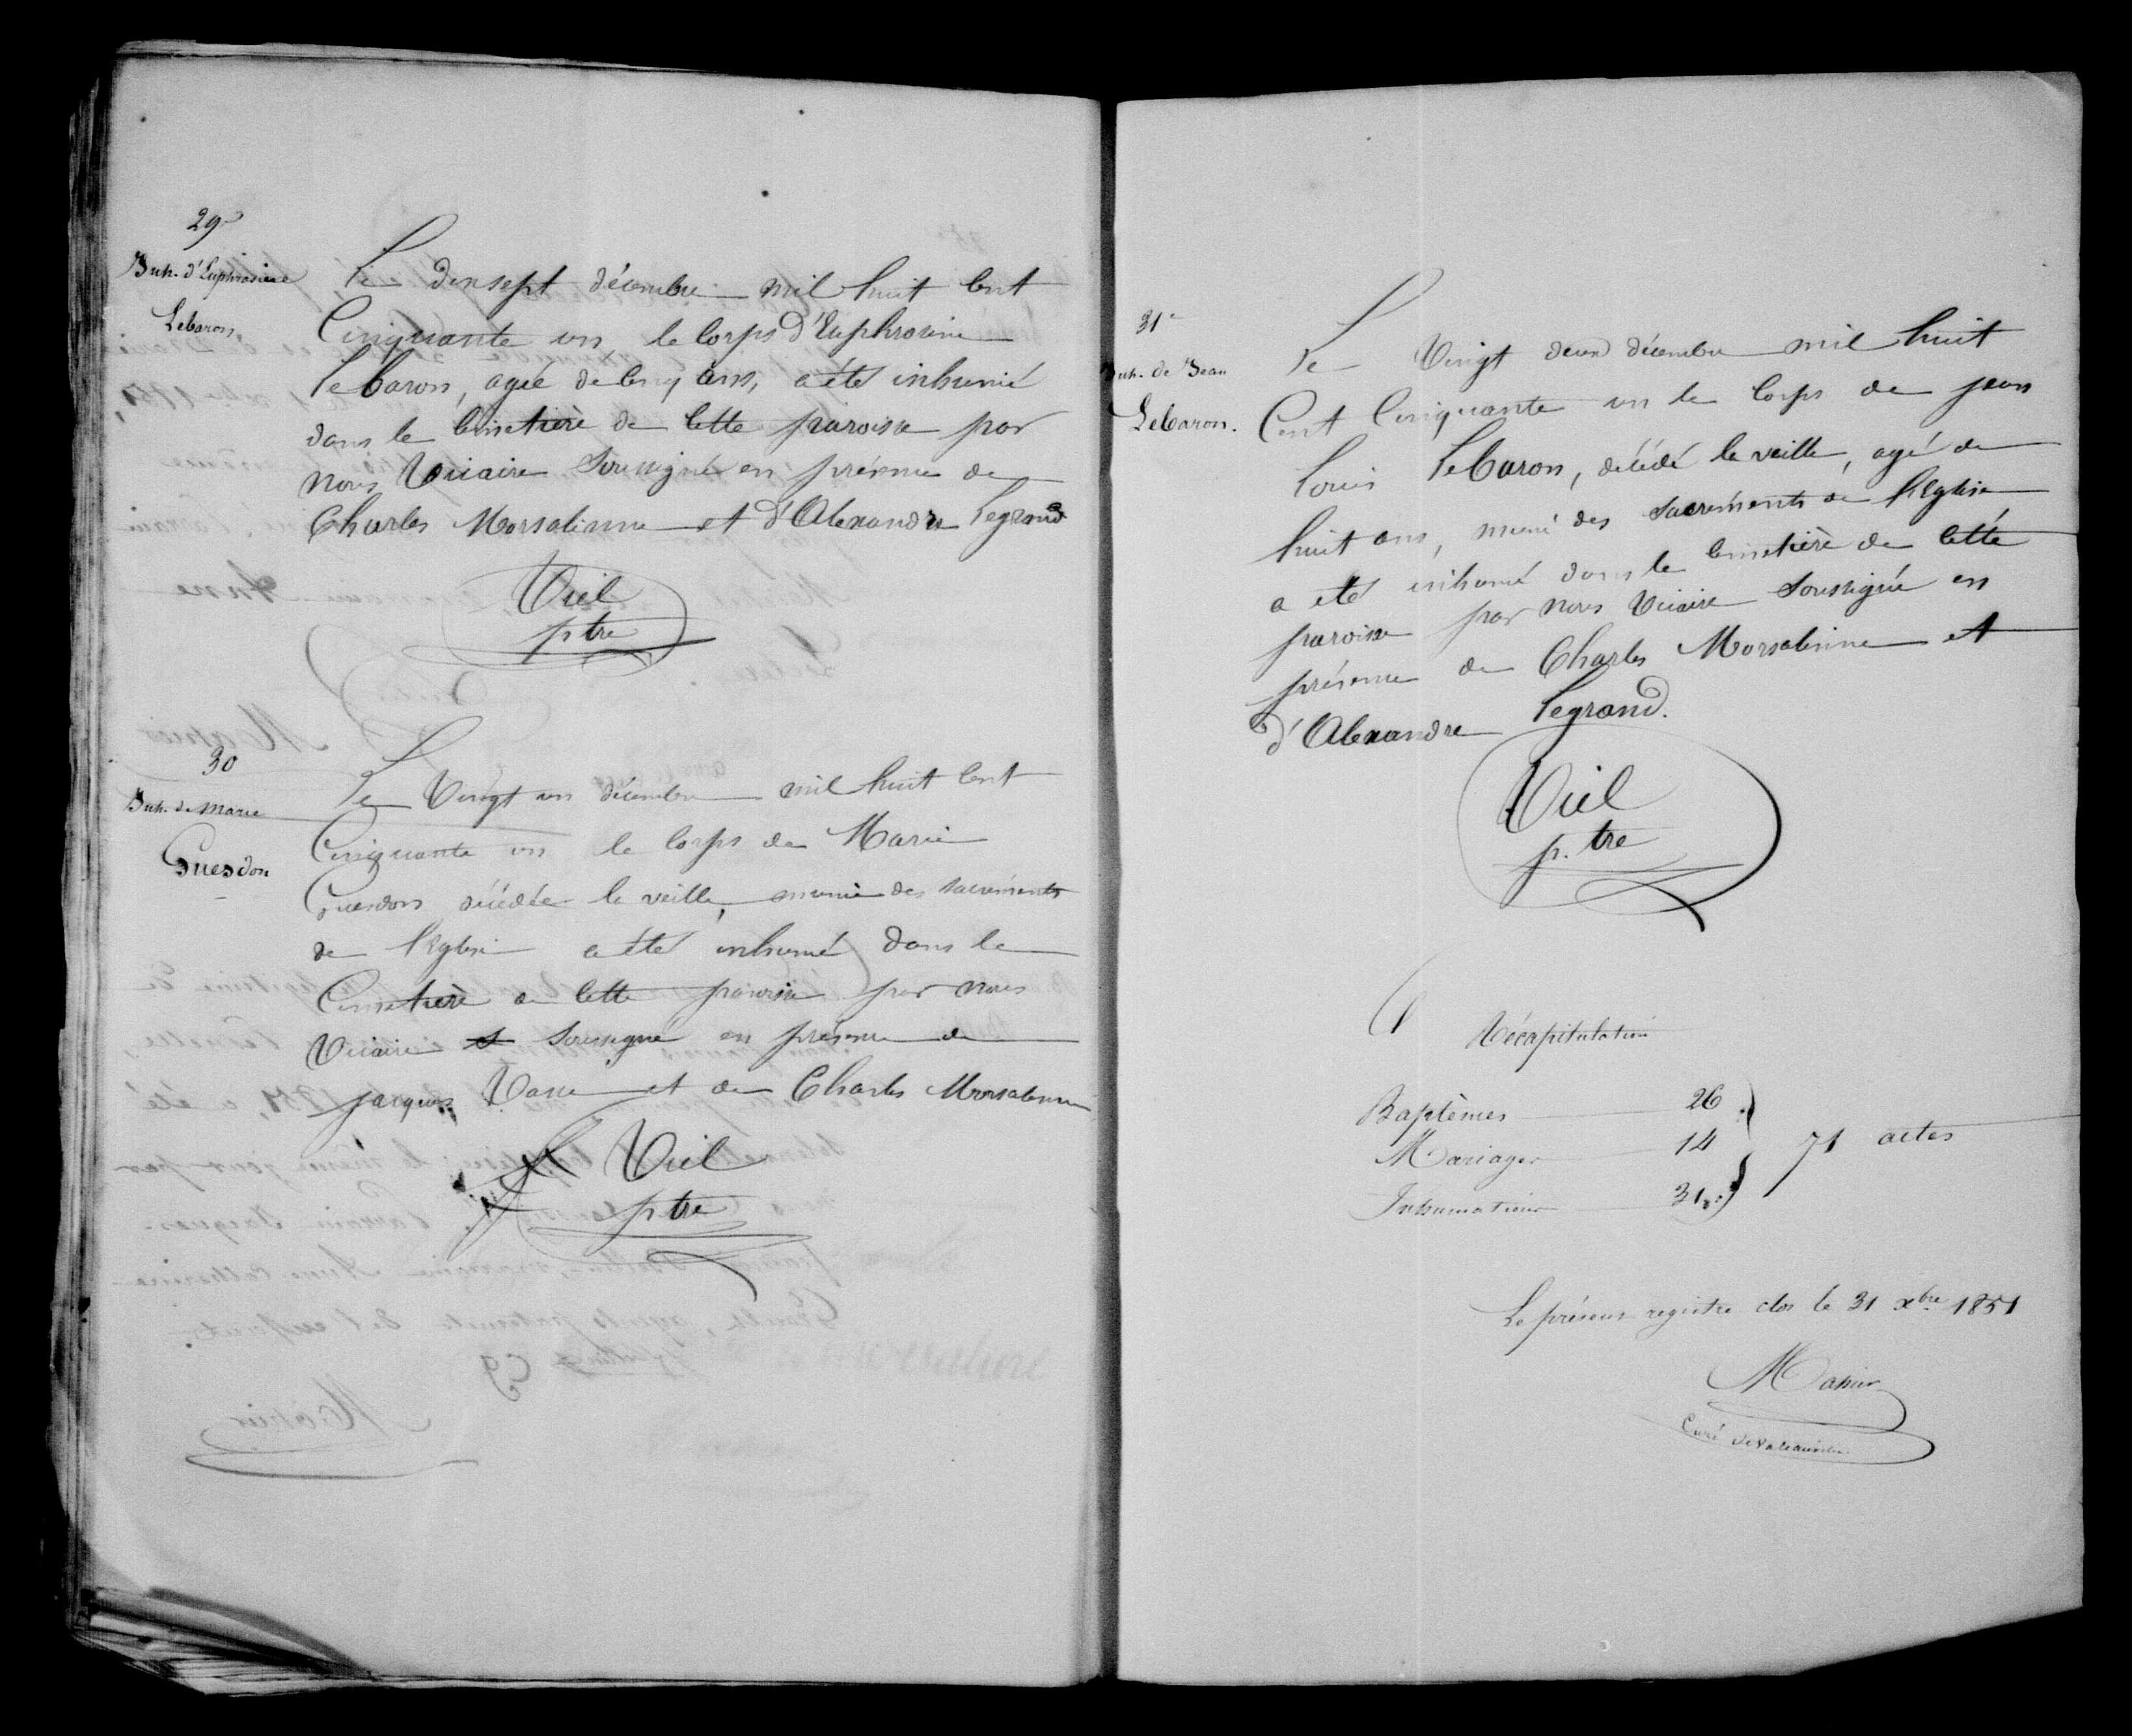 29e
Inh. d'Euphrosine
Lebaron
Le dixsept décembre mil huit cent
Cinquante un le corps d'Euphrosine
Lebaron, agée de cinq ans, a été inhumé
dans le cimetière de cette paroisse par
nous Vicaire Soussigné en présence de
Charles Morsalinne et d'Alexandre Legrand
Viel
ptre
30
Inh. de Marie
Guesdon
Le Vingt un décembre mil huit cent
Cinquante un le corps de Marie
Guesdon décédée la veille, munie des sacréments
de l'Eglise a été inhumé dans le
Cimetière de cette paroisse par nous
Vicaire et Soussigné en présence de
jacques et de Charles Morsalinne
Viel
ptre
31e
Inh. de Jean
Lebaron.
Le Vingt deux décembre mil huit
Cent Cinquante un le corps de jean
Louis Lebaron, décédé la veille, agé de
huit ans, muni des sacréments de l'Eglise
a été inhumé dans le cimetière de cette
paroisse par nous Vicaire Soussigné en
présence de Charles Morsalinne et
d'Alexandre Legrand.
Viel
p. tre
Récapitulation
Baptêmes 26
Mariages 14 71 actes
Inhumations 31
Le présent registre clos le 31 xbre 1851
Curé